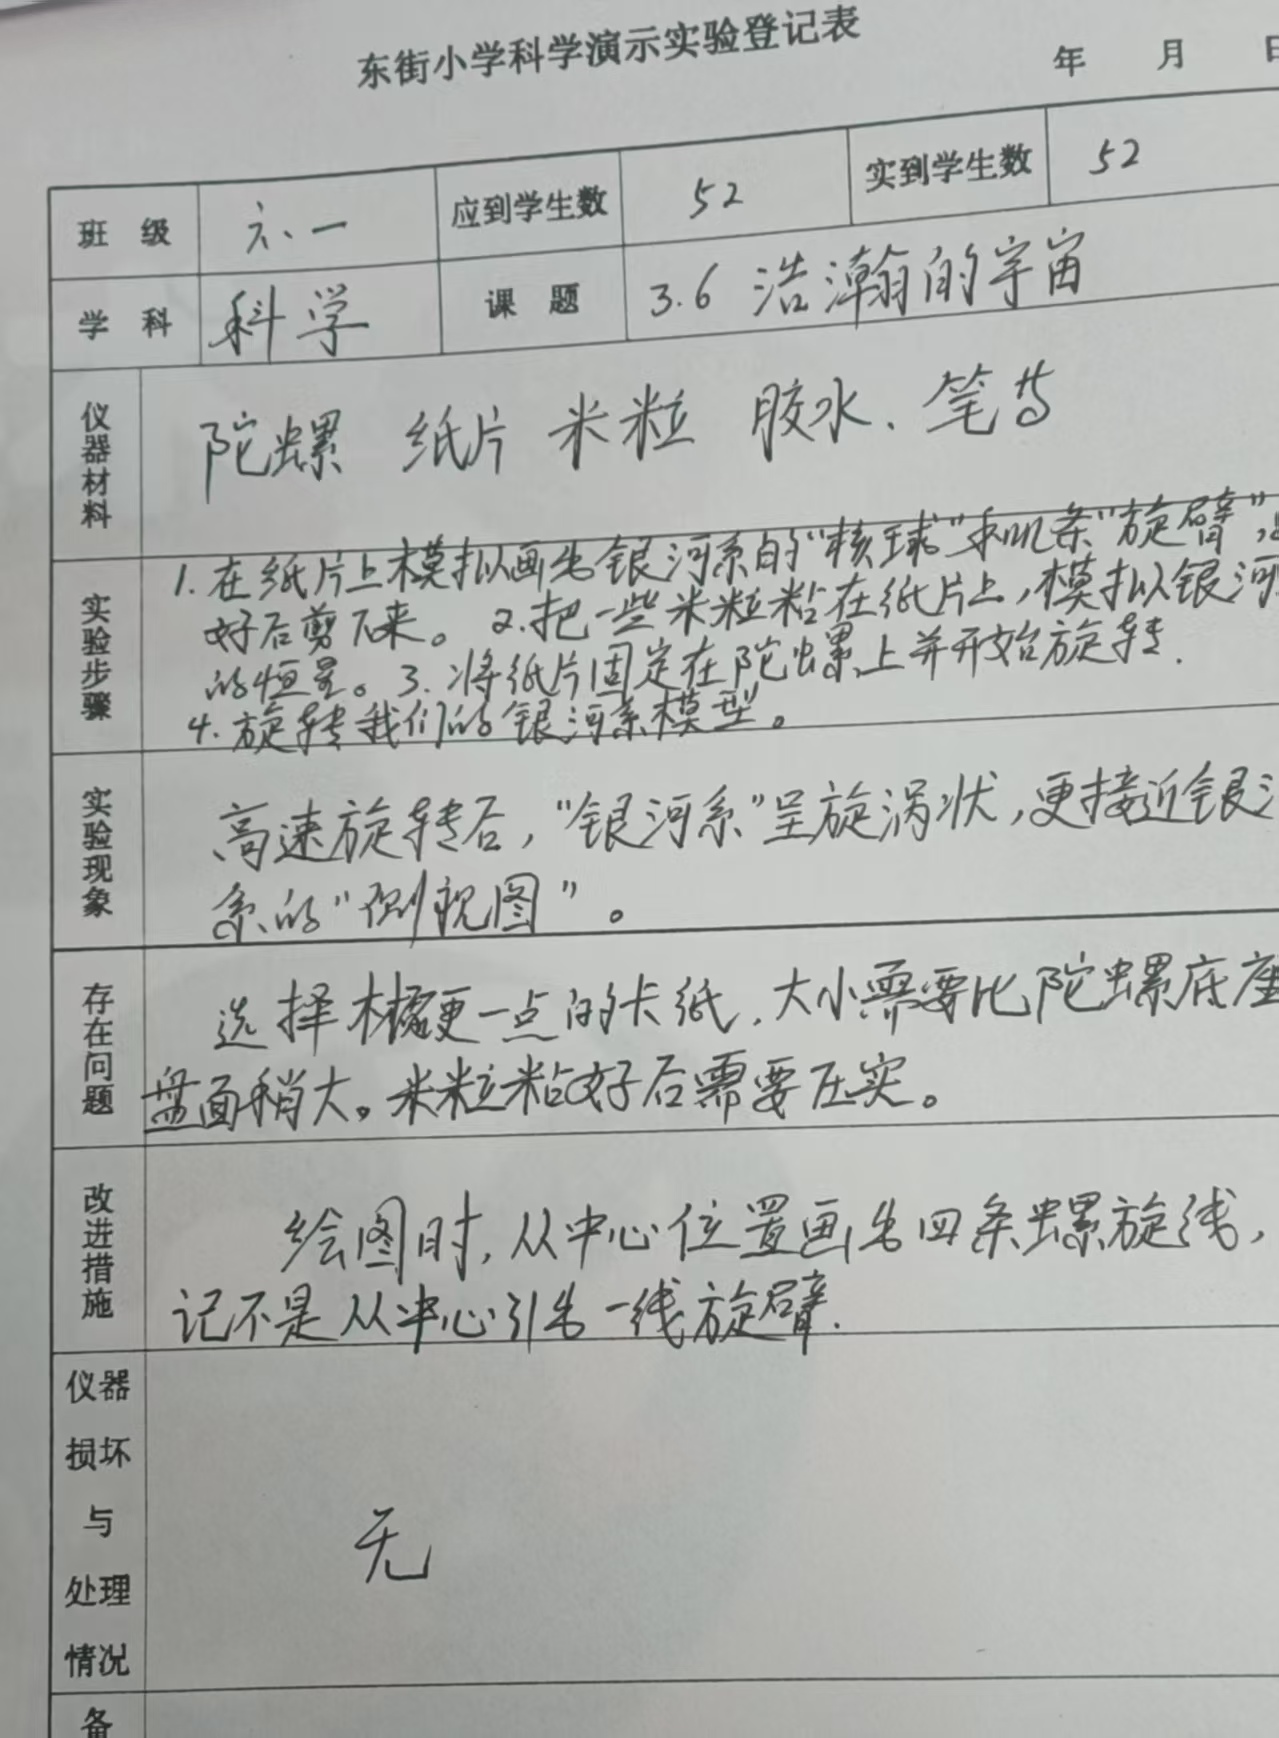 东街小学科学演示实验登记表
年 月 日
班 级 六、一 应到学生数 52 实到学生数 52
学 科 科学 课 题 3.6 浩瀚的宇宙
仪器材料 陀螺 纸片 米粒 胶水、笔等
实验步骤
1.在纸片上模拟画出银河系的“核球”和几条“旋臂”,
好后剪下来。 2.把一些米粒粘在纸片上,模拟银河
的恒星。3.将纸片固定在陀螺上并开始旋转.
4.旋转我们的银河系模型。
实验现象
高速旋转后,“银河系”呈旋涡状,更接近银河
系的“侧视图”。
存在问题
选择 一点的卡纸,大小需要比陀螺底座
盘面稍大。米粒粘好后需要压实。
改进措施
绘图时,从中心位置画出四条螺旋线,
记不是从中心引出一线旋臂.
仪器
损坏
与
处理
情况
无
备